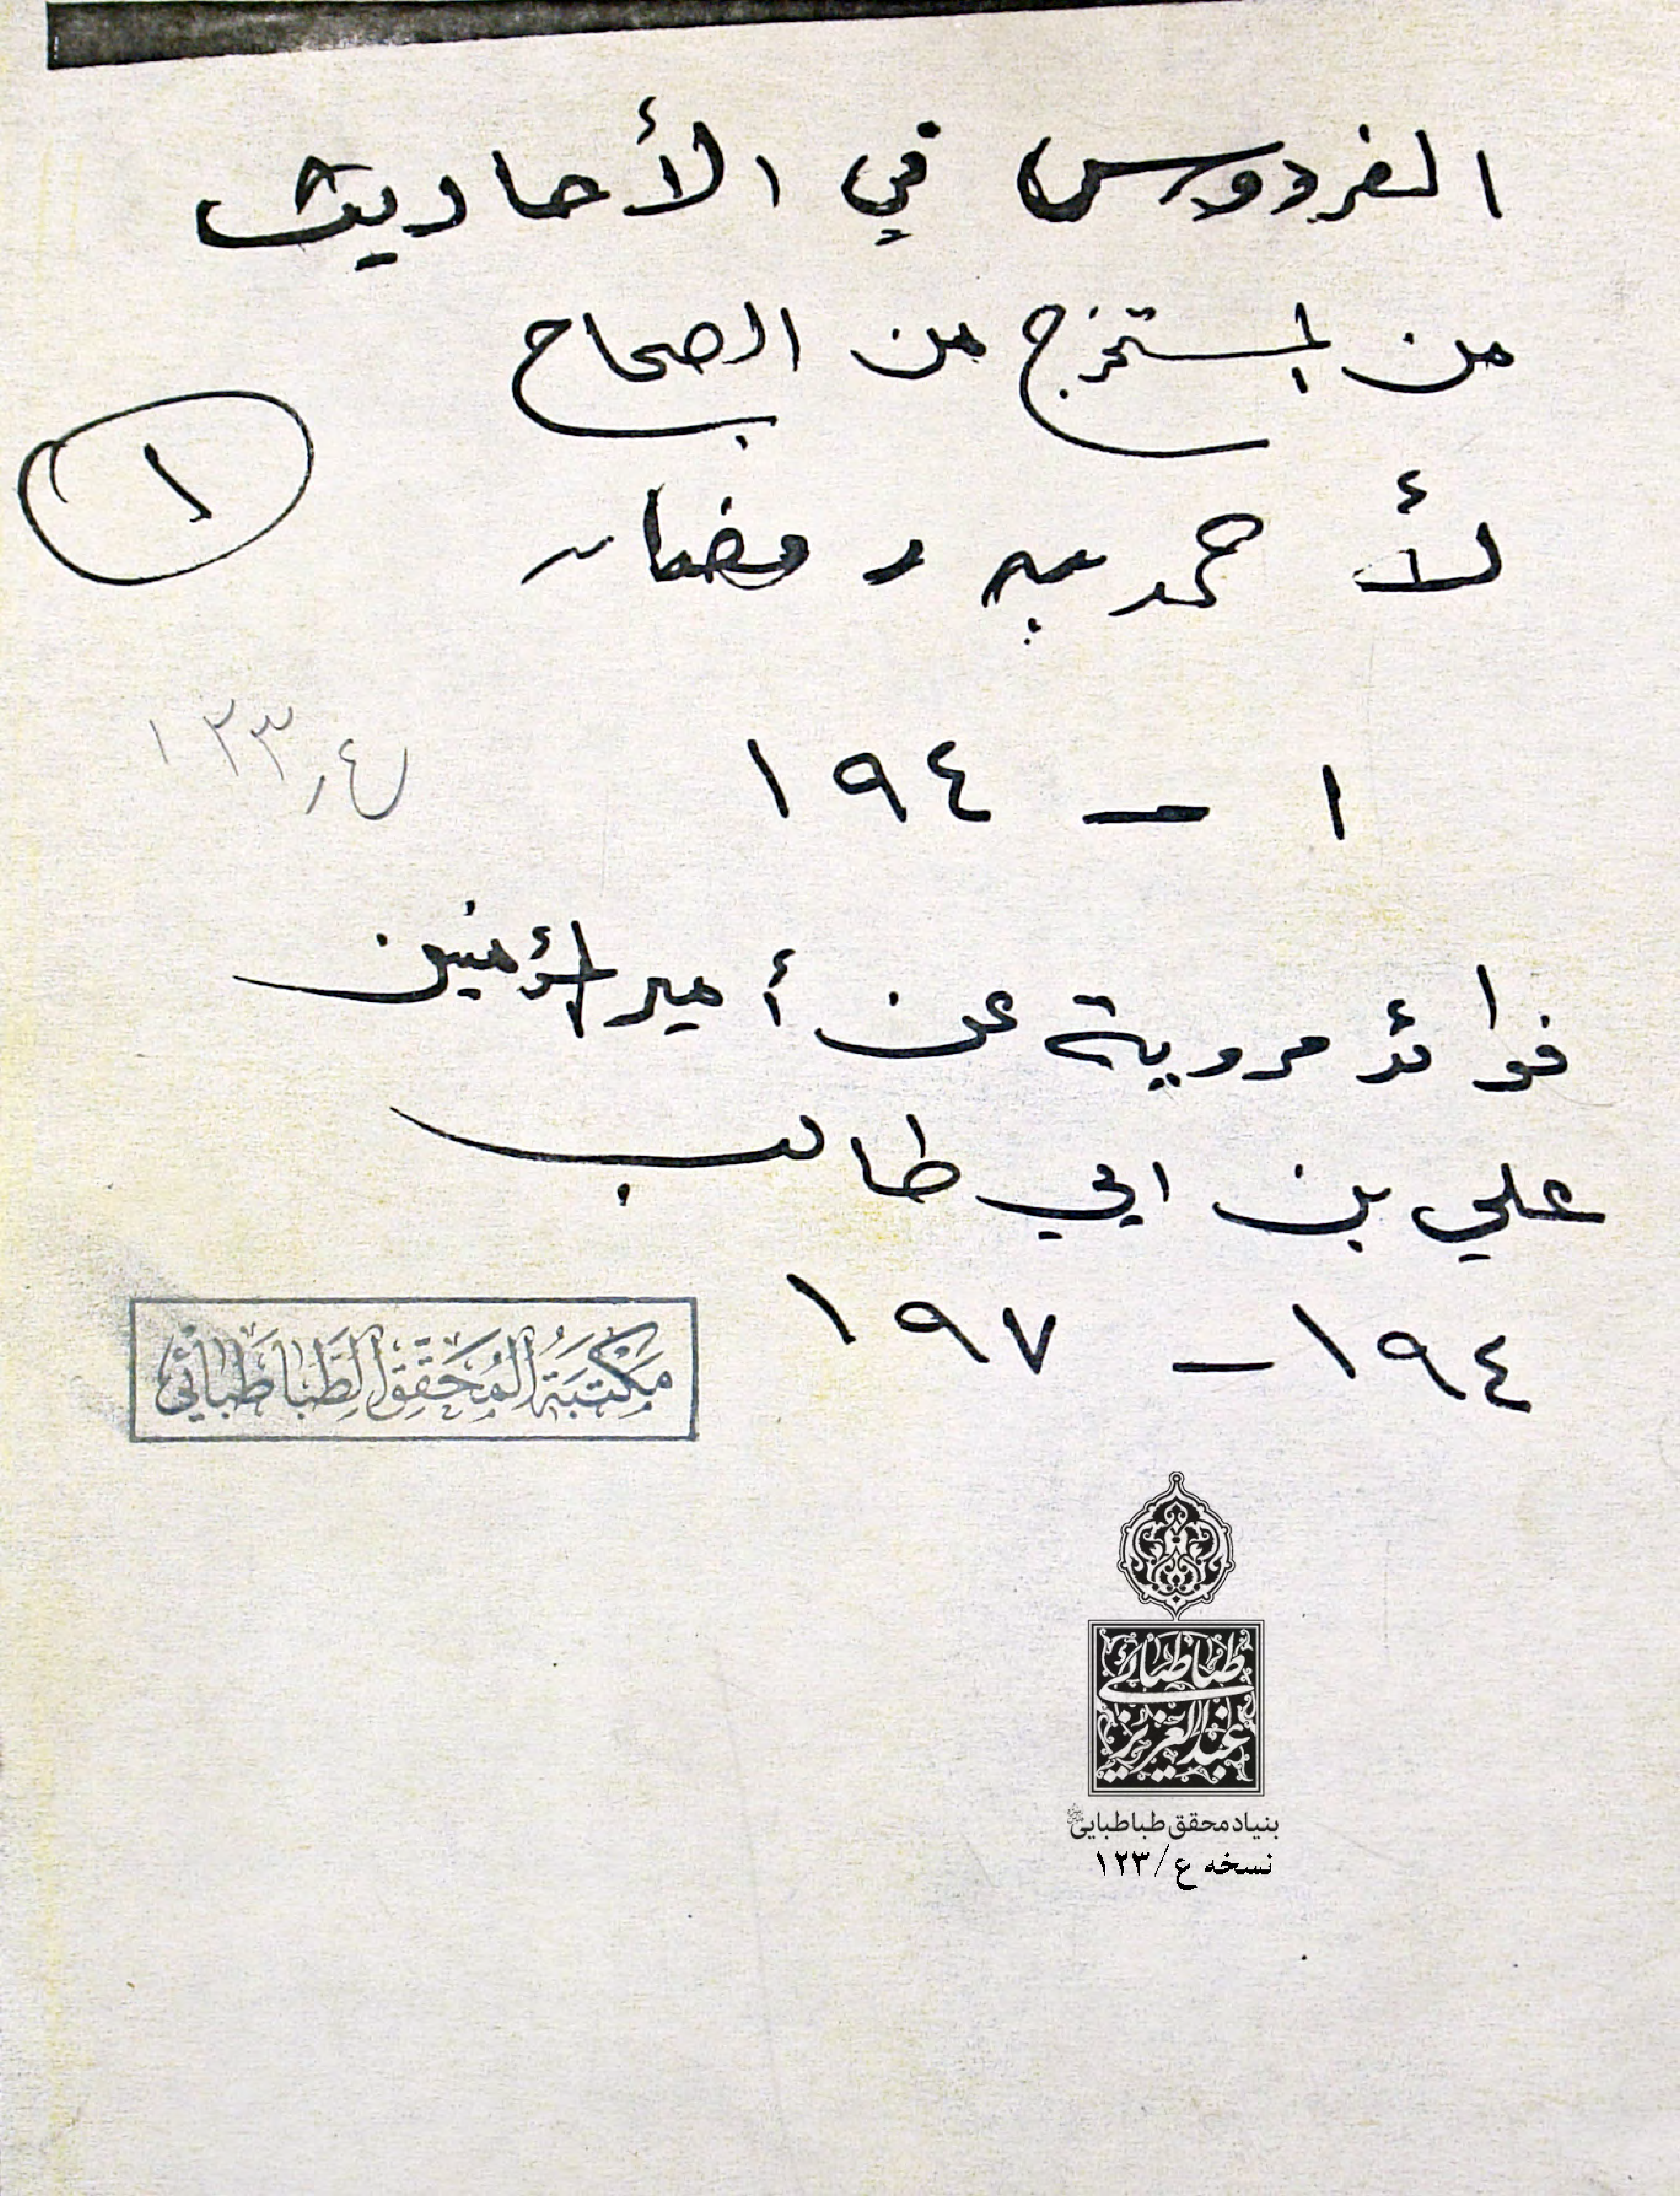 الفردوس في الأحاديث
من المستخرج من الصحاح
١
لأحمد بن رمضان
١ - ١٩٤
ع ر ١٢٣
فوائد مروية عن أمير المؤمنين
علي بن ابي طالب
١٩٤ - ١٩٧
مَكْتَبَةُ المُحَقِّقِ الطَّبَاطَبَائي
طباطبائی
عبدالعزیز
بنیاد محقق طباطبایی
نسخه ع/١٢٣